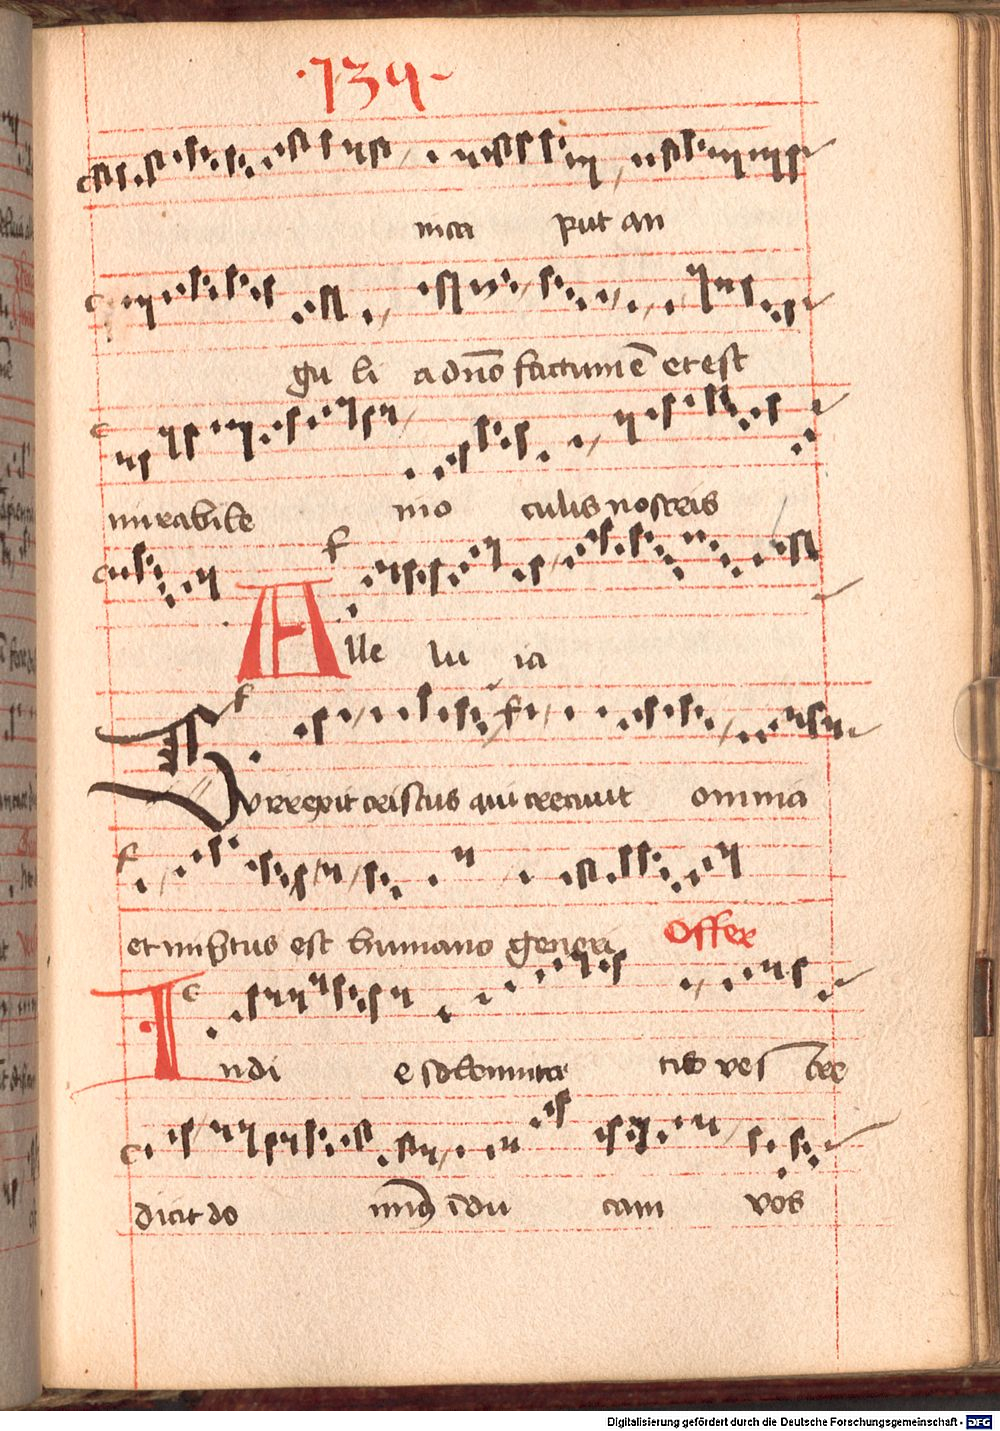 ·139·
in ca put an
gu li a dño factum ē et est
mirabile in o culis nostris
Alle lu ia
Surrexit cristus qui creavit omnia
et misertus est humano generi Offer
In di e solemnita tis ves tre
dicit do min9 īdu cam vos
Digitalisierung gefördert durch die Deutsche Forschungsgemeinschaft - DFG